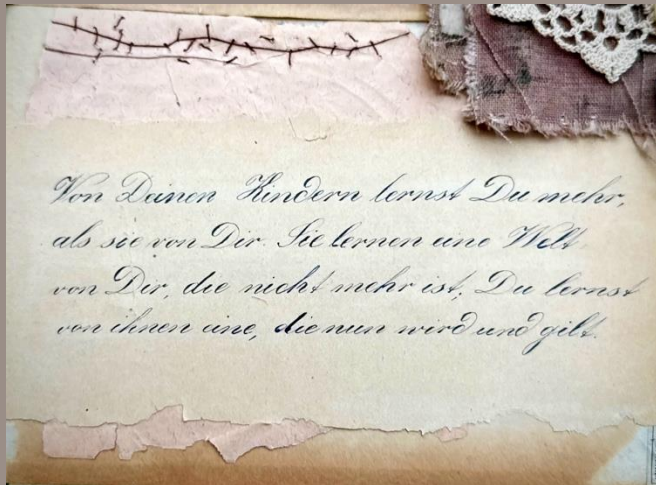 Von Deinen Kindern lernst Du mehr,
als sie von Dir. Sie lernen eine Welt
von Dir, die nicht mehr ist; Du lernst
von ihnen eine, die nun wird und gilt.